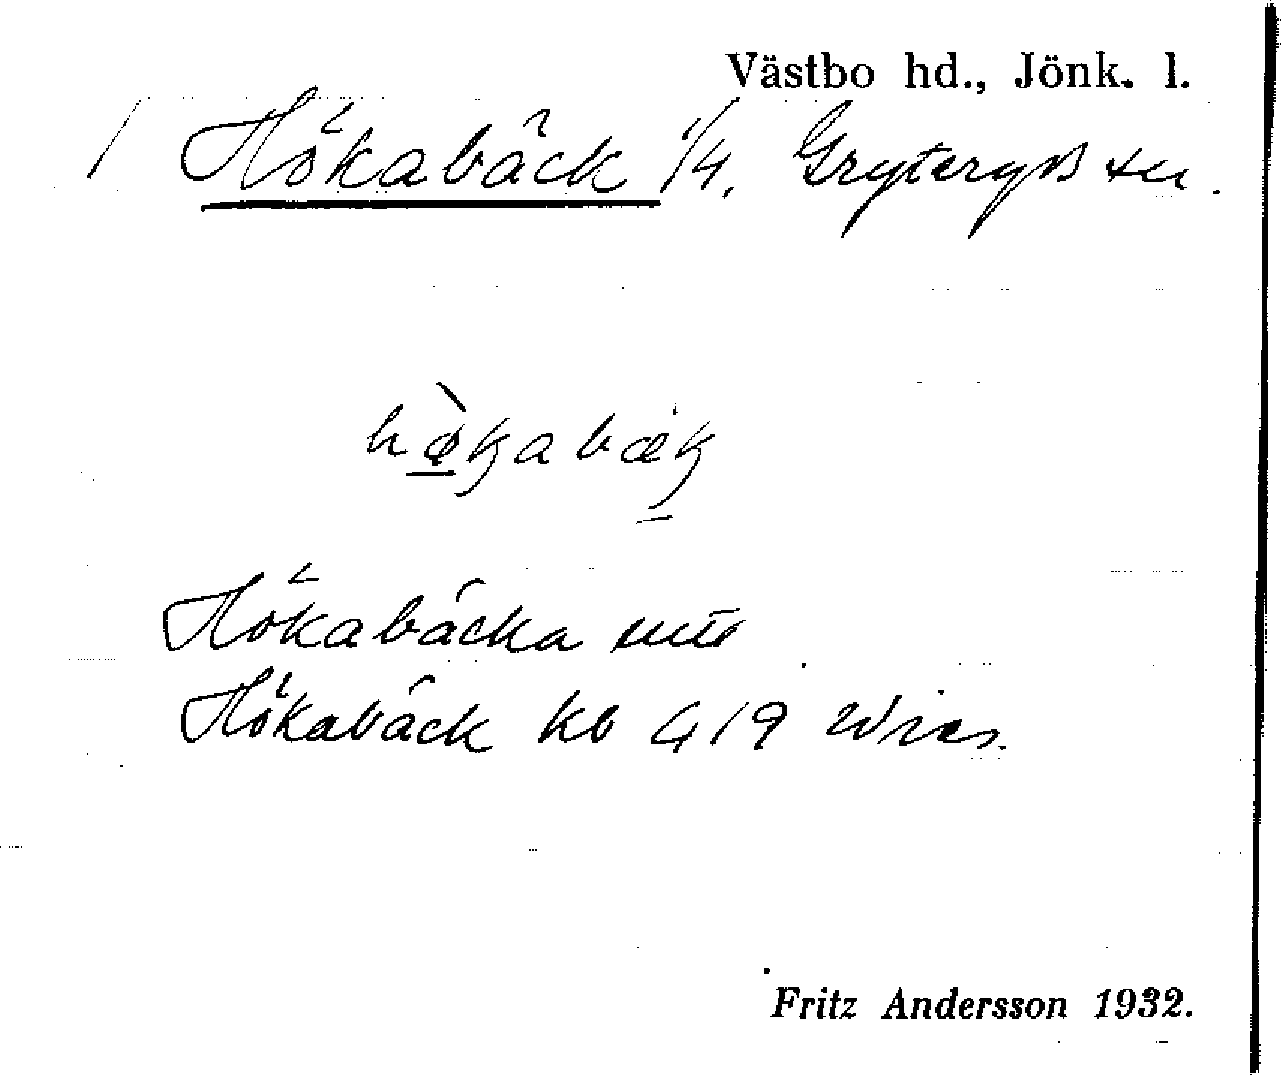 Västbo hd., Jönk. l.
/ Hökabäck 1/4. Gryteryds sn.
Hökabäcka
Hökabäck kb 419 Wies.
Fritz Andersson 1932.